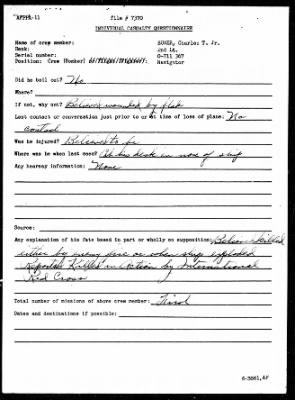 AFPPA-11 file # 7370
INDIVIDUAL CASUALTY QUESTIONNAIRE
Name of crew member: , Charles T. Jr.
Rank: 2nd Lt.
Serial number: 0-711 367
Position: Crew (Bomber) Navigator
Did he bail out? No
Where?
If not, why not? Believe wounded by flak
Last contact or conversation just prior to or at time of loss of plane: No
contact
Was he injured? Believed to be
Where was he when last seen? At his desk in nose of ship
Any hearsay information: None
Source:
Any explanation of his fate based in part or wholly on supposition: Believe killed
either by enemy fire or when ship exploded
Reported Killed in Action by International
Red Cross
Total number of missions of above crew member:
Dates and destinations if possible:
6-3861,AF